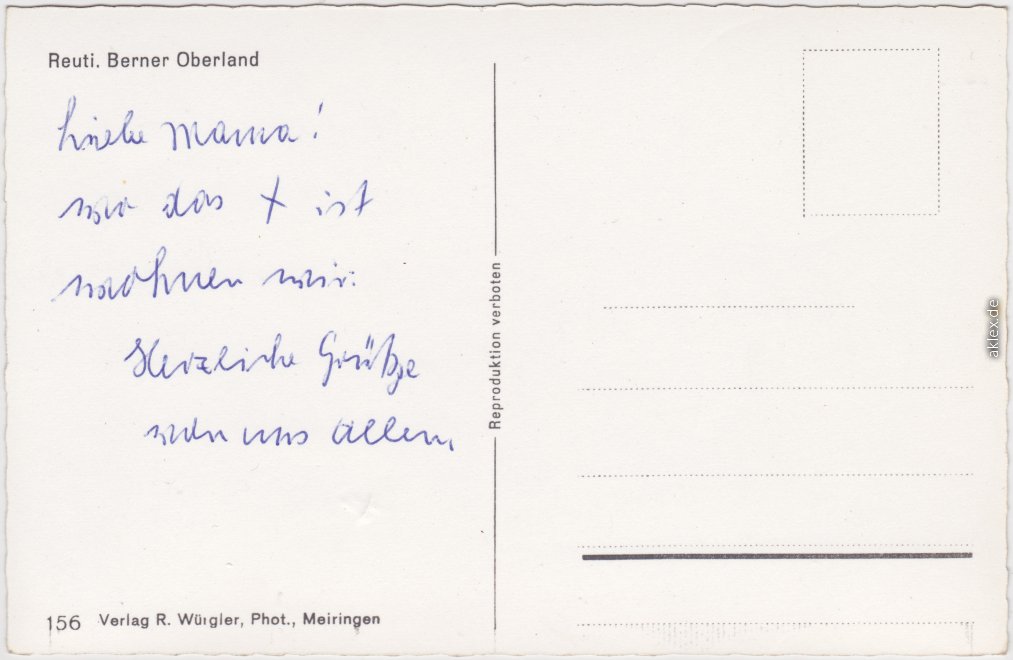 Reuti. Berner Oberland
Liebe Mama!
wo das X ist
wohnen wir.
Herzliche Grüße
von uns allen.
156 Verlag R. Würgler, Phot., Meiringen
Reproduktion verboten
aklex.de